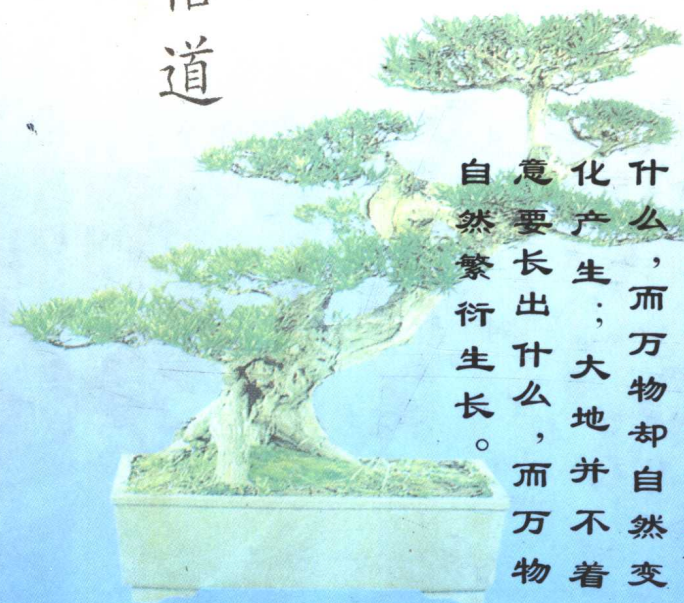 什么，而万物却自然变
化产生；大地并不着
意要长出什么，而万物
自然繁衍生长。
道